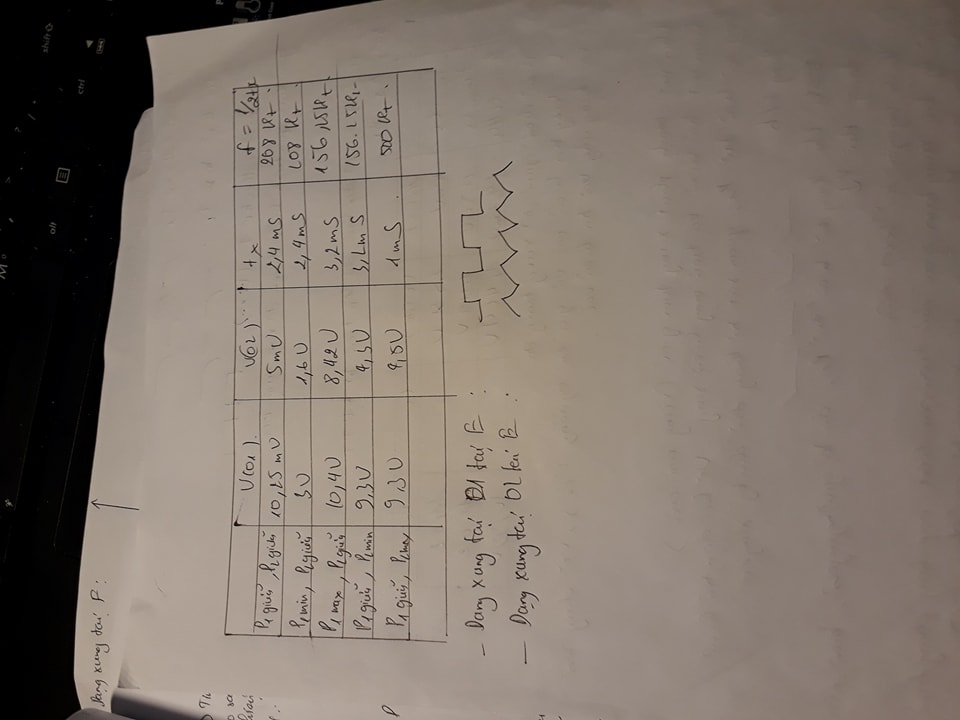 Dạng xung tại F :
U(O1) U(O2) tx f = 1/2tx
P1 giữa, P2 giữa 10,25 mU 5mU 2,4 mS 208 Hz
P1 min, P2 giữa 3U 1,6U 2,4mS 208 Hz
P1 max, P2 giữa 10,4U 8,42U 3,2mS 156,25Hz
P1 giữa, P2 min 9,3U 4,5U 3,2mS 156.25Hz
P1 giữa, P2 max 9,3U 4,5U 1mS 500 Hz
– Dạng xung tại O1 tại E :
– Dạng xung tại O2 tại E :
alt
shift
ctrl